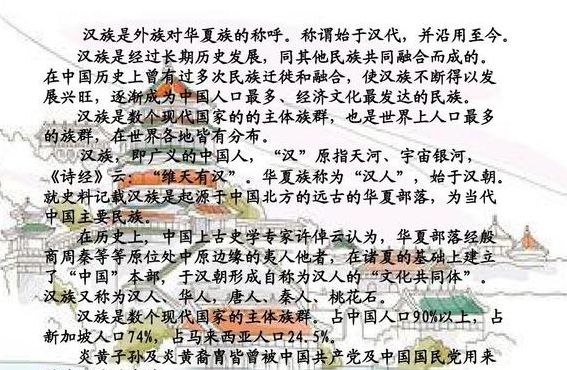 汉族是外族对华夏族的称呼。称谓始于汉代，并沿用至今。
汉族是经过长期历史发展，同其他民族共同融合而成的。
在中国历史上曾有过多次民族迁徙和融合，使汉族不断得以发
展兴旺，逐渐成为中国人口最多、经济文化最发达的民族。
汉族是数个现代国家的的主体族群，也是世界上人口最多
的族群，在世界各地皆有分布。
汉族，即广义的中国人，“汉”原指天河、宇宙银河，
《诗经》云：“维天有汉”。华夏族称为“汉人”，始于汉朝。
就史料记载汉族是起源于中国北方的远古的华夏部落，为当代
中国主要民族。
在历史上，中国上古史学专家许倬云认为，华夏部落经殷
商周秦等等原位处中原边缘的夷人他者，在诸夏的基础上建立
了“中国”本部，于汉朝形成自称为汉人的“文化共同体”。
汉族又称为汉人、华人，唐人、秦人、桃花石。
汉族是数个现代国家的主体族群。占中国人口90%以上，占
新加坡人口74%，占马来西亚人口24.5%。
炎黄子孙及炎黄裔胄皆曾被中国共产党及中国国民党用来